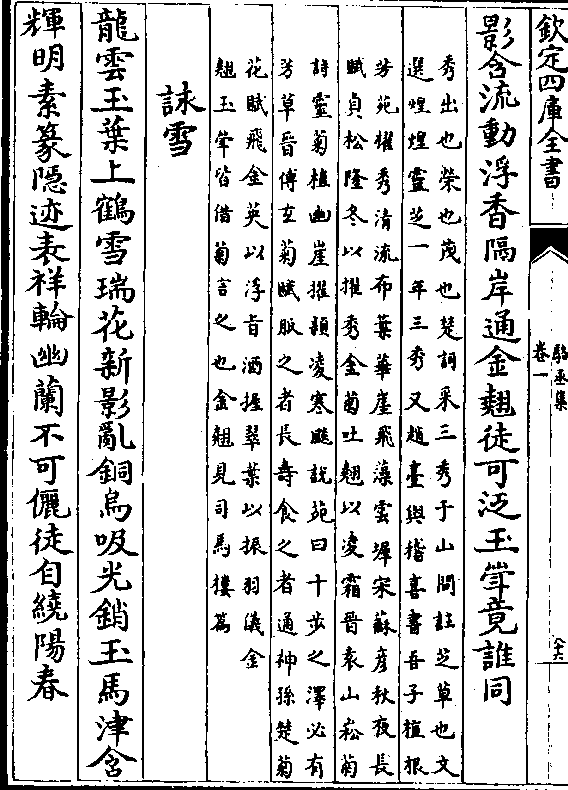 欽定四庫全書
駱丞集
卷一
影含流動浮香隔岸通金翹徒可泛玉斝竟誰同
秀出也榮也茂也楚詞采三秀于山間註芝草也文
選煌煌靈芝一年三秀又趙臺與嵇喜書吾子植根
芳苑耀秀清流布葉華崖飛藻雲墀宋蘇彥秋夜長
賦貞松隆冬以擢秀金菊吐翹以凌霜晉袁山崧菊
詩靈菊植幽崖擢頴凌寒飇說苑曰十步之澤必有
芳草晉傅玄菊賦服之者長壽食之者通神孫楚菊
花賦飛金英以浮旨酒握翠葉以振羽儀金
翹玉斝皆借菊言之也金翹見司馬樓篇
詠雪
龍雲玉葉上鶴雪瑞花新影亂銅烏吸光銷玉馬津含
輝明素篆隱迹表祥輪幽蘭不可儷徒自繞陽春